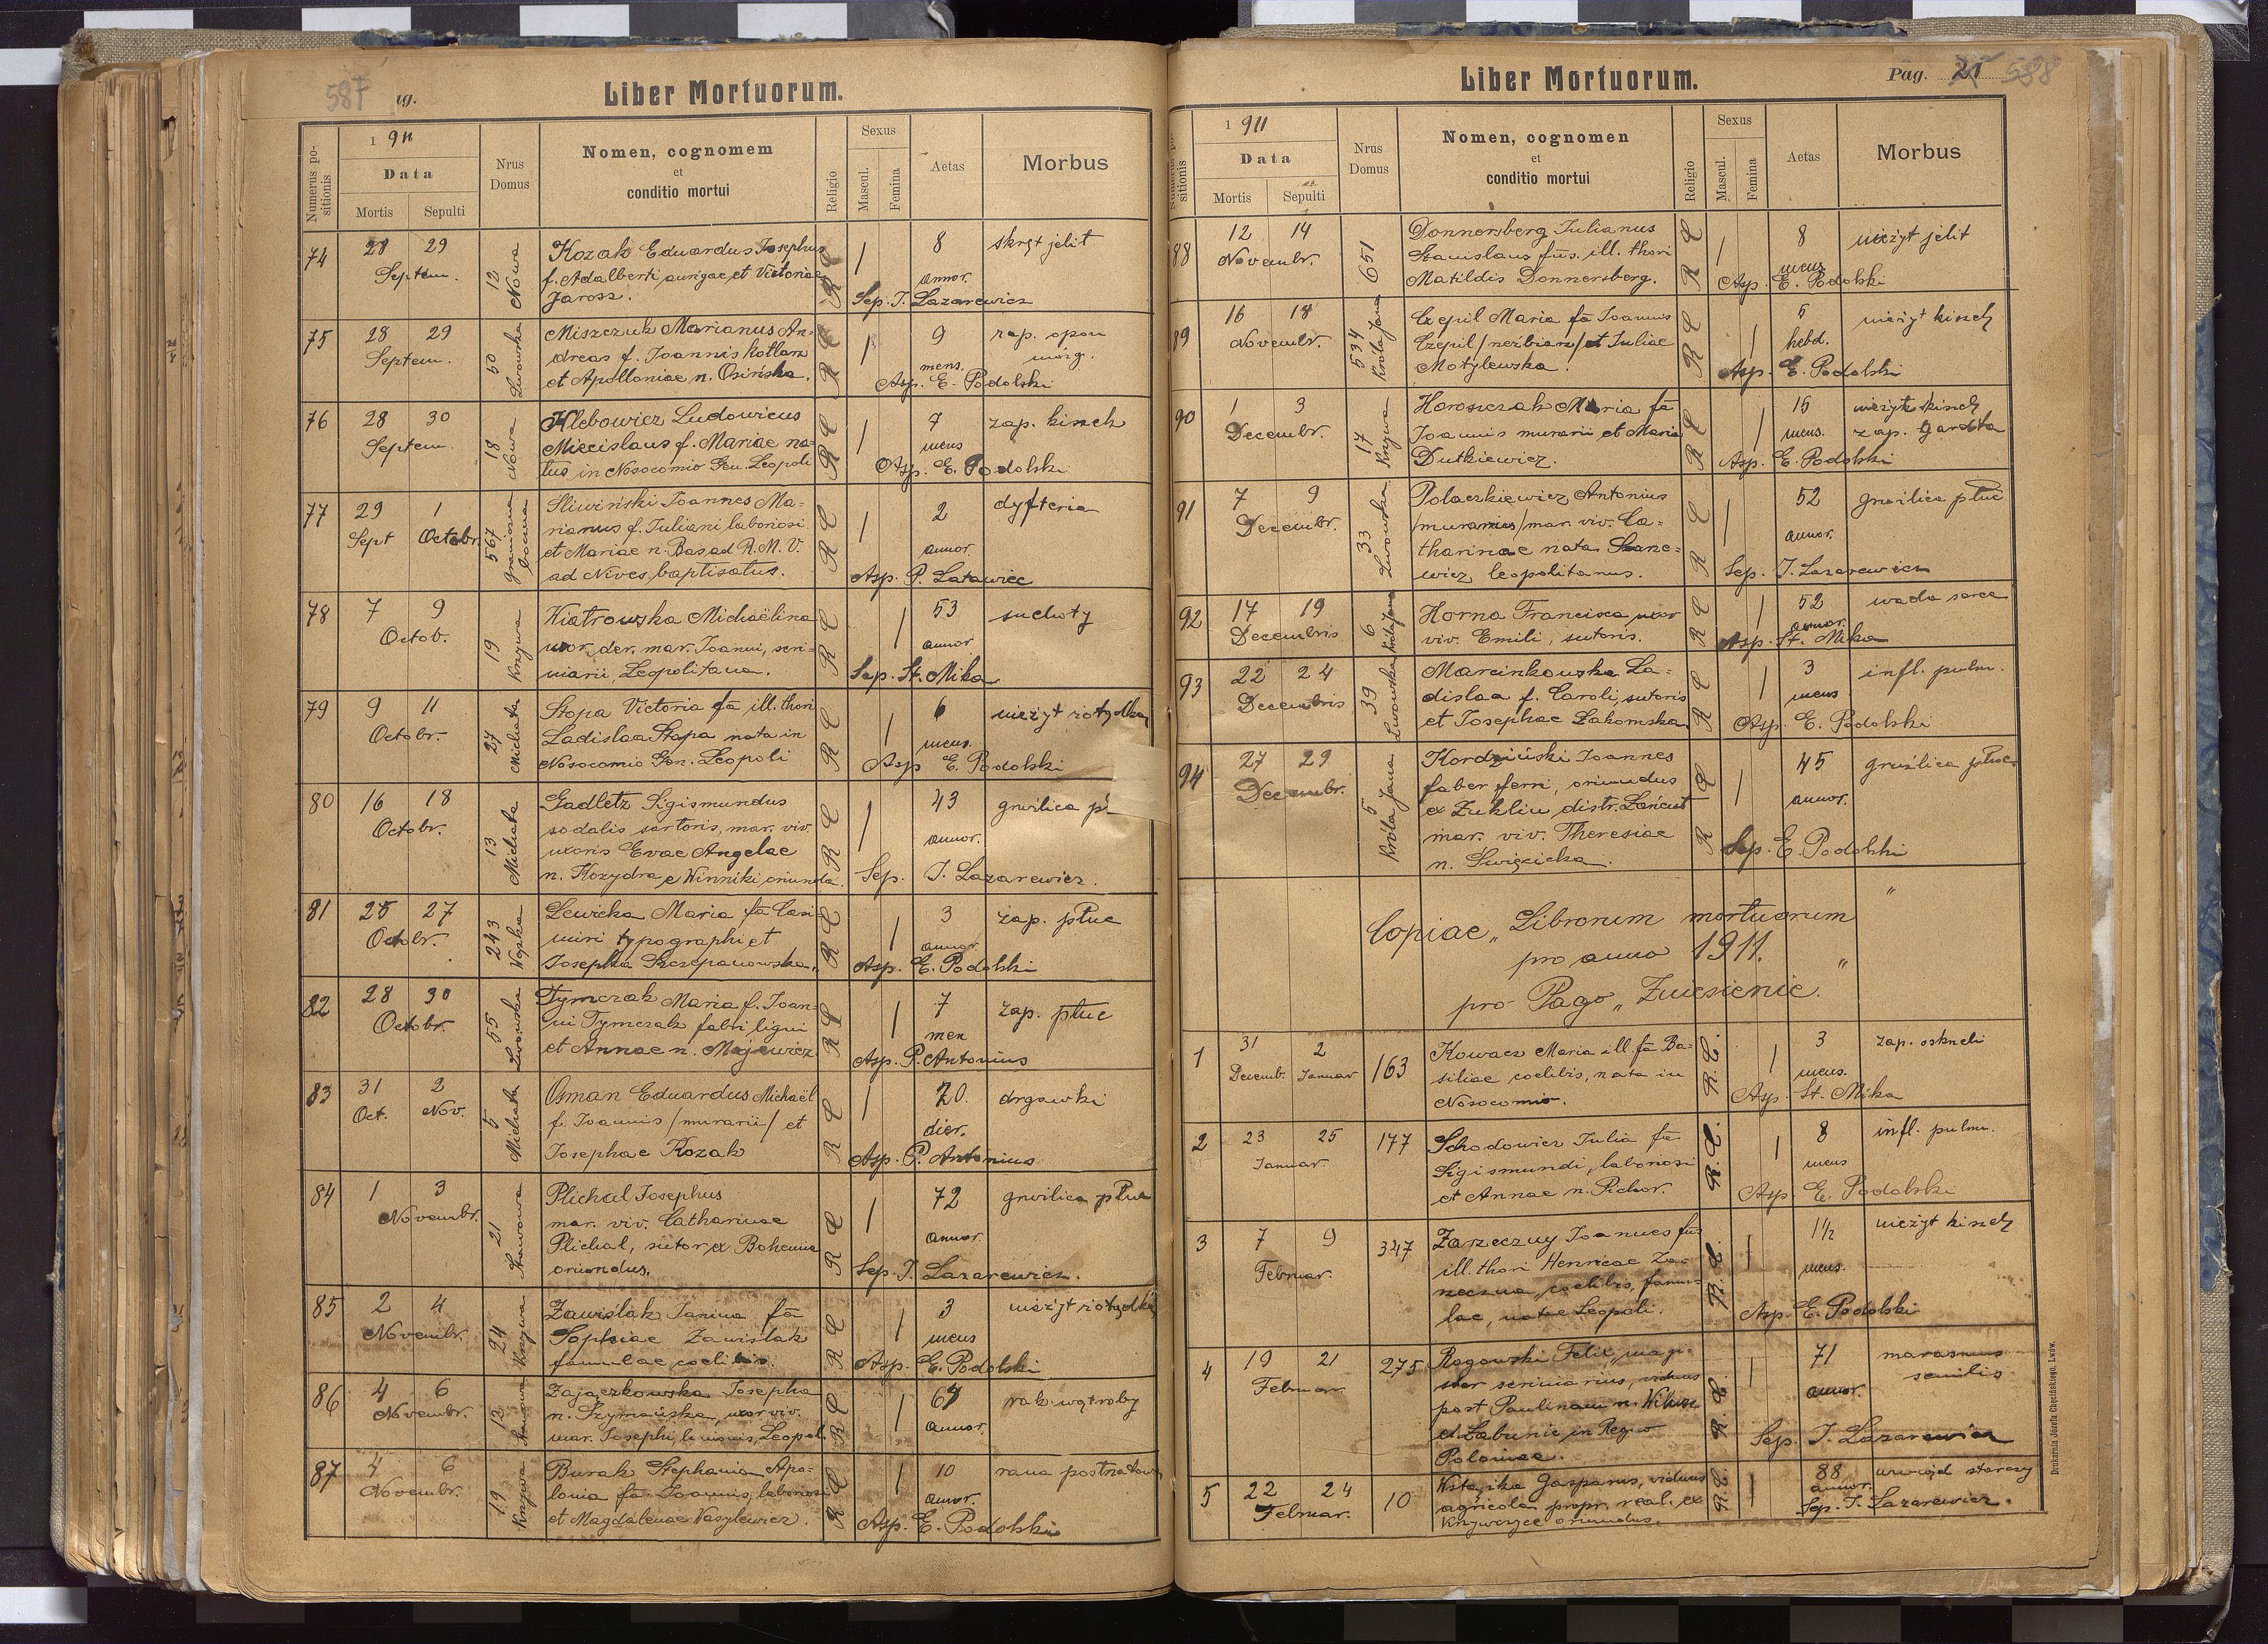 587 ag.
Liber Mortuorum.
Numerus positionis
1911
Data
Mortis Sepulti
Nrus Domus
Nomen, cognomem
et
conditio mortui
Religio
Sexus
Mascul. Femina
Aetas
Morbus
74 28 29 Septem. 12 Nowa
Kozak Eduardus Josephus
f. Adalberti aurigae et Victoriae
Jarosz.
R C 1 8 annor. skręt jelit
Sep. J. Lazarewicz
75 28 29 Septem. 50 Lwowska
Miszczuk Marianus An-
dreas f. Joannis Kotlarz
et Apolloniae n. Osińska.
R C 1 9 mens. zap. opon
mózg.
Asp. E. Podolski
76 28 30 Septem. 18 Nowa
Klebowicz Ludowicus
Miecislaus f. Mariae na-
tus in Nosocomio Gen. Leopoli
R C 1 7 mens zap. kiszek
Asp. E. Podolski
77 29 Sept 1 Octobr. 567 Graniczna
Sliwiński Joannes Ma-
rianus f. Juliani laboriosi
et Mariae n. Bas ad R. M. V.
ad Nives baptisatus.
R C 1 2 annor. dyfteria
Asp. P. Latawiec
78 7 9 Octob. 19 Krzywa
Kiatrowska Michaëlina
uxor der. mar. Joanni, scri-
niarii, Leopolitana.
R C 1 53 annor suchoty
Sep. St. Mika
79 9 11 Octobr. 27 Michała
Stopa Victoria fa ill. thori
Ladislaa Stopa nata in
Nosocomio Gen. Leopoli
R C 1 6 mens. nieżyt żołądka
Asp E. Podolski
80 16 18 Octobr. 13 Michała
Gadletz Sigismundus
sodalis sartoris, mar. viv.
uxoris Evae Angelae
n. Kozydra e Winniki oriunda.
R C 1 43 annor. gruźlica pł
Sep. J. Lazarewicz.
81 25 27 Octobr. 243 Wąska
Lewicka Maria fa Casi
miri typographi et
Josepha Szczepanowska.
R C 1 3 annor zap. płuc
Asp. E. Podolski
82 28 30 Octobr. 55 Lwowska
Tymczak Maria f. Joan-
ni Tymczak fabri ligni
et Annae n. Majewicz.
R C 1 7 men zap. płuc
Asp. P. Antonius
83 31 Oct. 2 Nov. 5 Michała
Osman Eduardus Michaël
f. Joannis /murarii/ et
Josephae Kozak
R C 1 20. dier. drgawki
Asp. P. Antonius
84 1 3 Novembr. 21
Plichal Josephus
mar. viv. Catharinae
Plichal, sutor ex Bohemia
oriundus.
R C 1 72 annor gruźlica płuc
Sep. J. Lazarewicz.
85 2 4 Novembr. 24 Krzywa
Zawiślak Janina fa
Sophiae Zawiślak
famulae coelibis.
R C 1 3 mens nieżyt żołądka
Asp. E. Podolski
86 4 6 Novembr. 13
Zajączkowska Josepha
n. Szymańska, uxor viv.
mar. Josephi lanionis, Leopol.
R C 1 64 annor. rak wątroby
87 4 6 Novembr. 19 Krzywa
Burak Stephania Apo-
lonia fa Joannis, laboriosi
et Magdalenae Wasylewicz.
R C 1 10 annor. rana postrzałowa
Asp. E. Podolski
Liber Mortuorum.
Pag. 21 588
Numerus positionis
1911
Data
Mortis Sepulti
Nrus Domus
Nomen, cognomen
et
conditio mortui
Religio
Sexus
Mascul. Femina
Aetas
Morbus
88 12 14 Novembr. 651
Donnersberg Julianus
Stanislaus fus. ill. thori
Matildis Donnersberg.
R C 1 8 mens nieżyt jelit
Asp. E. Podolski
89 16 18 Novembr. 534 Króla Jana
Czepil Maria fa Joannis
Czepil et Juliae
Motylewska.
R C 1 5 hebd. nieżyt kiszek
Asp. E. Podolski
90 1 3 Decembr. 17 Krzywa
Horoszczak Maria fa
Joannis murarii et Maria
Dutkiewicz.
R C 1 15 mens. nieżyt kiszek
zap. gardła
Asp. E. Podolski
91 7 9 Decembr. 33 Lwowska
Polaczkiewicz Antonius
/murarius/ mar. viv. Ca-
tharinae nata Szanc-
wicz leopolitanus.
R C 1 52 annor. gruźlica płuc
Sep. J. Lazarewicz
92 17 19 Decembris 6 Króla Jana
Horna Francisca uxor
viv. Emili, sutoris.
R C 1 52 annor. wada serca
Asp. St. Mika
93 22 24 Decembris 39 Lwowska
Marcinkowska La-
dislaa f. Caroli, sutoris
et Josephae Lakomska.
R C 1 3 mens infl. pulm.
Asp. E. Podolski
94 27 29 Decembr. 5 Króla Jana
Kordziński Joannes
faber ferri, oriundus
ex Zuklin, distr. Łańcut
mar. viv. Theresiae
n. Swięcicka.
R C 1 45 annor. gruźlica płuc
Sep. E. Podolski
Copiae „Librorum mortuorum"
pro anno 1911.
pro Pago „Zniesienie."
1 31 Decemb. 2 Januar 163
Kowacz Maria ill. fa Ba-
siliae coelibis, nata in
Nosocomio.
R. C. 1 3 mens. zap. oskrzeli
Asp. St. Mika
2 23 25 Januar. 177
Schodowicz Julia fa
Sigismundi, laboriosi
et Annae n. Pichor.
R. C. 1 8 mens infl. pulm.
Asp E. Podolski
3 7 9 Februar. 347
Zarzeczny Joannes fus
ill. thori Henricae Za-
rzeczna, coelibis, famu-
lae, natae Leopoli.
R. C. 1 1½ mens. nieżyt kiszek
Asp. E. Podolski
4 19 21 Februar 275
Rogowski Felix, magi-
ster scriniarius, viduus
post Paulinam n.
et Zabunie in Regno
Poloniae.
R. C. 1 71 annor. marasmus
senilis
Sep. J. Lazarewicz
5 22 24 Februar. 10
Gasparus, viduus
agricola propr. real. ex
Krzywczyce oriundus.
R. C. 1 88 annor. uwiąd starczy
Sep. J. Lazarewicz.
Drukarnia Józefa Chęcińskiego, Lwów.